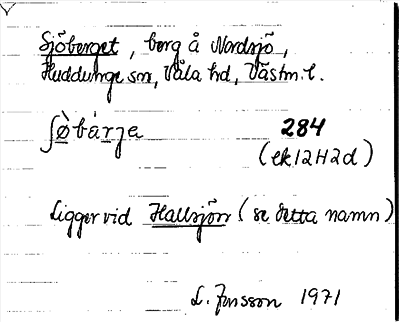 Sjöberget, berg å Nordsjö,
Huddunge sn, Våla hd, Västm. l.
ʃø̀bärjɐ 284
(ek 12H2d)
Ligger vid Hallsjön (se detta namn)
L. Jonsson 1971